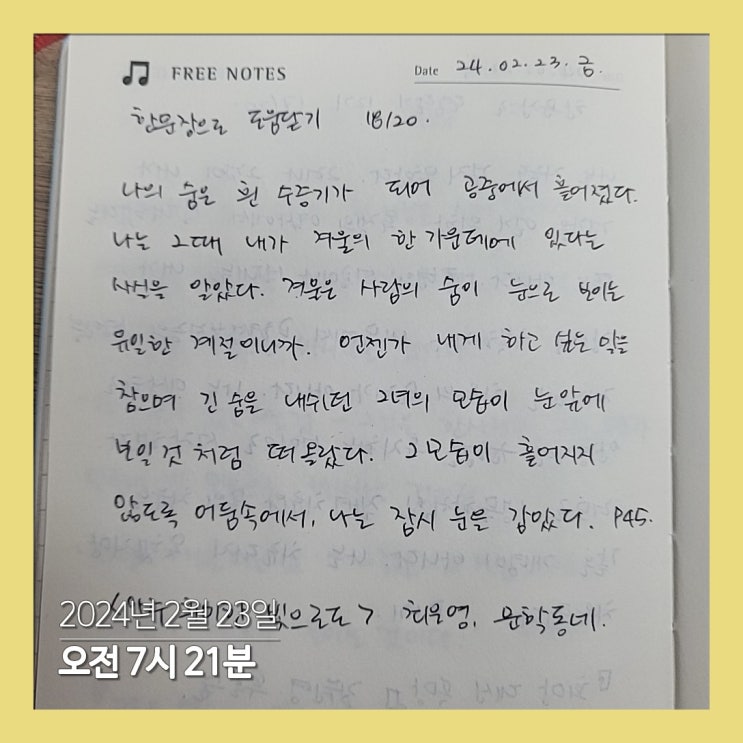 FREE NOTES
Date 24.02.23.금.
한문장으로 도움닫기 18/20.
나의 숨은 흰 수증기가 되어 공중에서 흩어졌다.
나는 그때 내가 겨울의 한 가운데에 있다는
사실을 알았다. 겨울은 사람의 숨이 눈으로 보이는
유일한 계절이니까. 언젠가 내게 하고 싶은 말을
참으며 긴 숨을 내쉬던 그녀의 모습이 눈앞에
보일것 처럼 떠올랐다. 그모습이 흩어지지
않도록 어둠속에서, 나는 잠시 눈을 감았다. P45.
빛으로도> 최은영, 문학동네.
2024년 2월 23일
오전 7시 21분